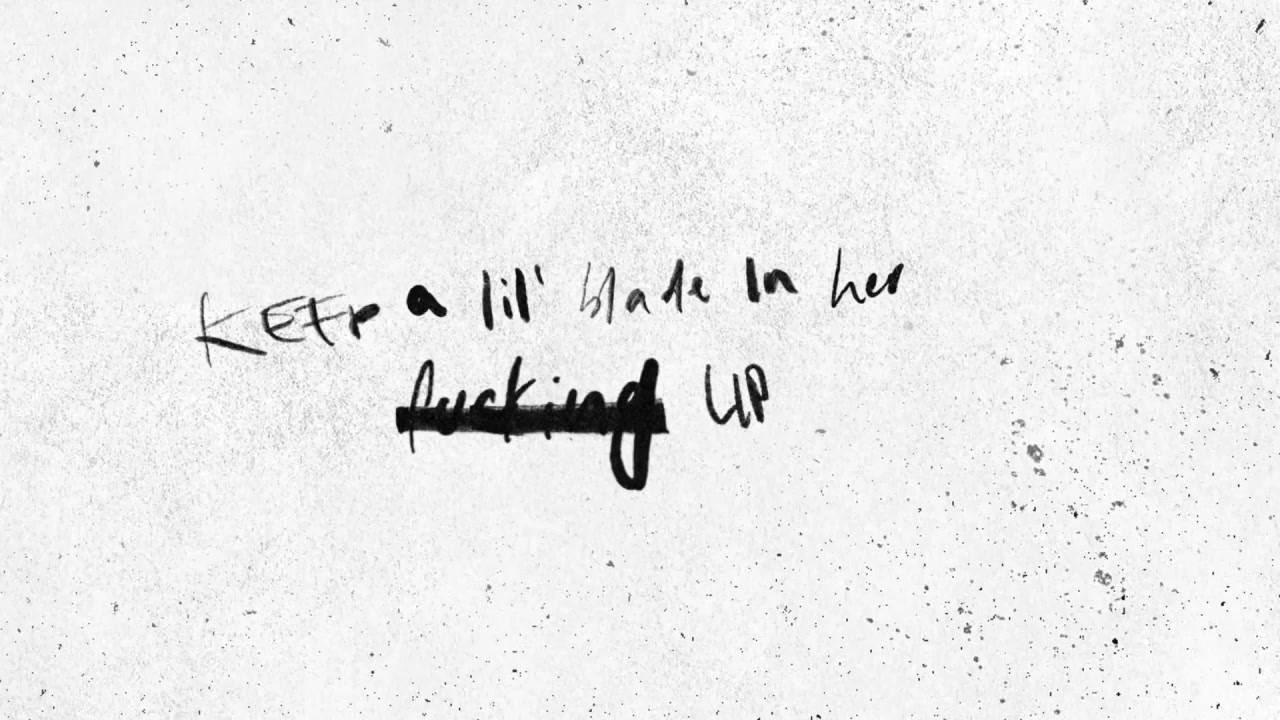 KEEP a lil' blade In her
fucking LIP